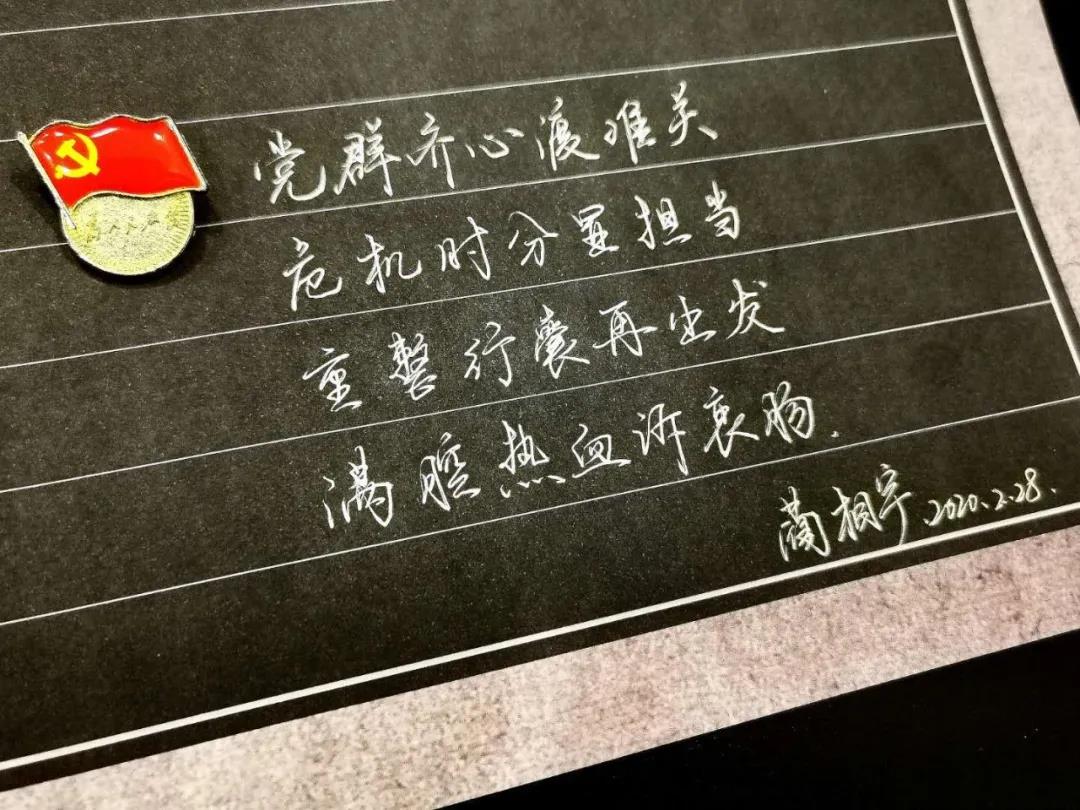 党群齐心渡难关
危机时分显担当
重整行囊再出发
满腔热血诉衷肠.
蔺相宇.2020.2.28.